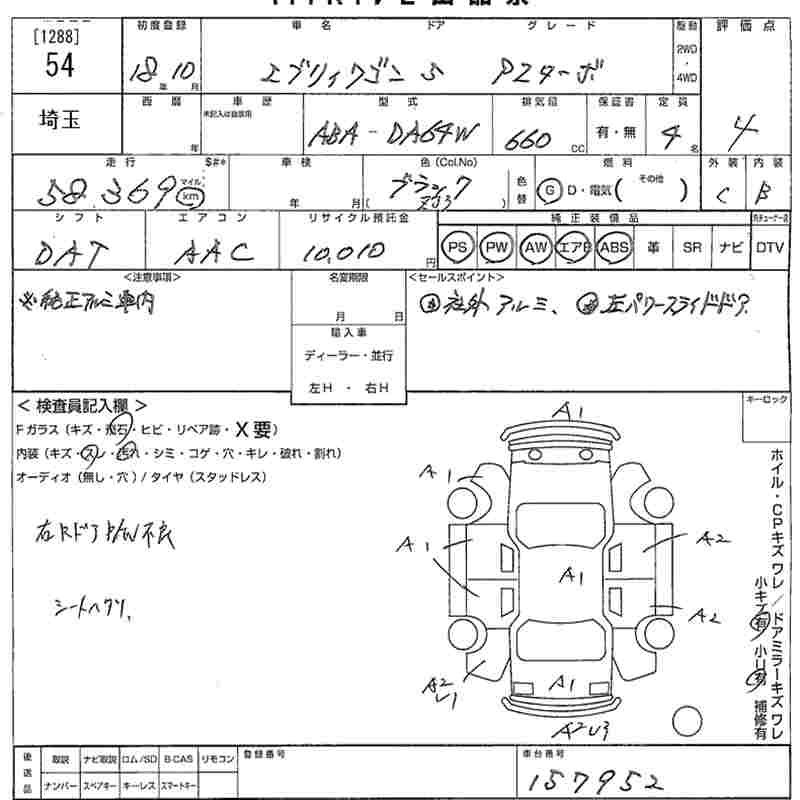 [1288]
54
初度登録
18年 10月
車名 ドア グレード
エブリィワゴン 5 PZターボ
駆動
2WD
・
4WD
評価点
4
埼玉
西暦
年
車歴
未記入は自家用
型式
ABA-DA64W
排気量
660 CC
保証書
有・無
定員
4名
走行 $#*
58,369 マイル km
車検
年 月(
色(Col.No)
ブラック
ZJ3 )
色替
燃料
G D・電気( その他 )
外装
C
内装
B
シフト
DAT
エアコン
AAC
リサイクル預託金
10,010 円
純正装備品
PS PW AW エアB ABS 革 SR ナビ
DTV
<注意事項>
※純正アルミ車内
名変期限
月 日
輸入車
ディーラー・並行
左H ・ 右H
<セールスポイント>
社外アルミ、 左パワースライドドア.
キーロック
<検査員記入欄>
Fガラス(キズ・飛石・ヒビ・リペア跡・X要)
内装(キズ・スレ・汚れ・シミ・コゲ・穴・キレ・破れ・割れ)
オーディオ(無し・穴)/タイヤ(スタッドレス)
右Rドア P/W不良
シートヘタリ.
A1
A1
A1
A2
A1
A2
A2
U1
A1
A2U3
ホイル・CPキズ ワレ/ドアミラーキズ ワレ
小キズ有 小U有 補修有
後送品
取説 ナビ取説 ロム/SD B-CAS リモコン
ナンバー スペアキー キーレス スマートキー
登録番号
車台番号
157952